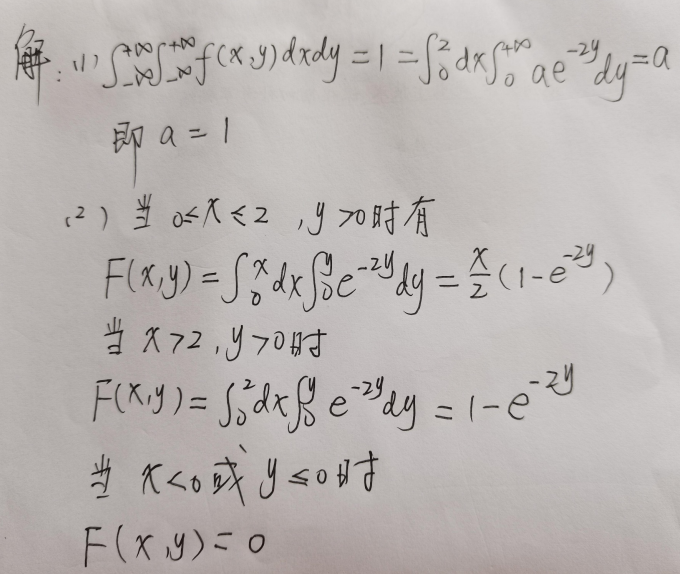 解:(1) ∫_{-∞}^{+∞}∫_{-∞}^{+∞}f(x,y)dxdy=1=∫_0^2dx∫_0^{+∞}ae^{-2y}dy=a
即 a=1
(2) 当 0≤x≤2,y>0时有
F(x,y)=∫_0^x dx∫_0^y e^{-2y}dy=\frac{x}{2}(1-e^{-2y})
当 x>2,y>0时
F(x,y)=∫_0^2dx∫_0^y e^{-2y}dy=1-e^{-2y}
当 x<0或 y≤0时
F(x,y)=0